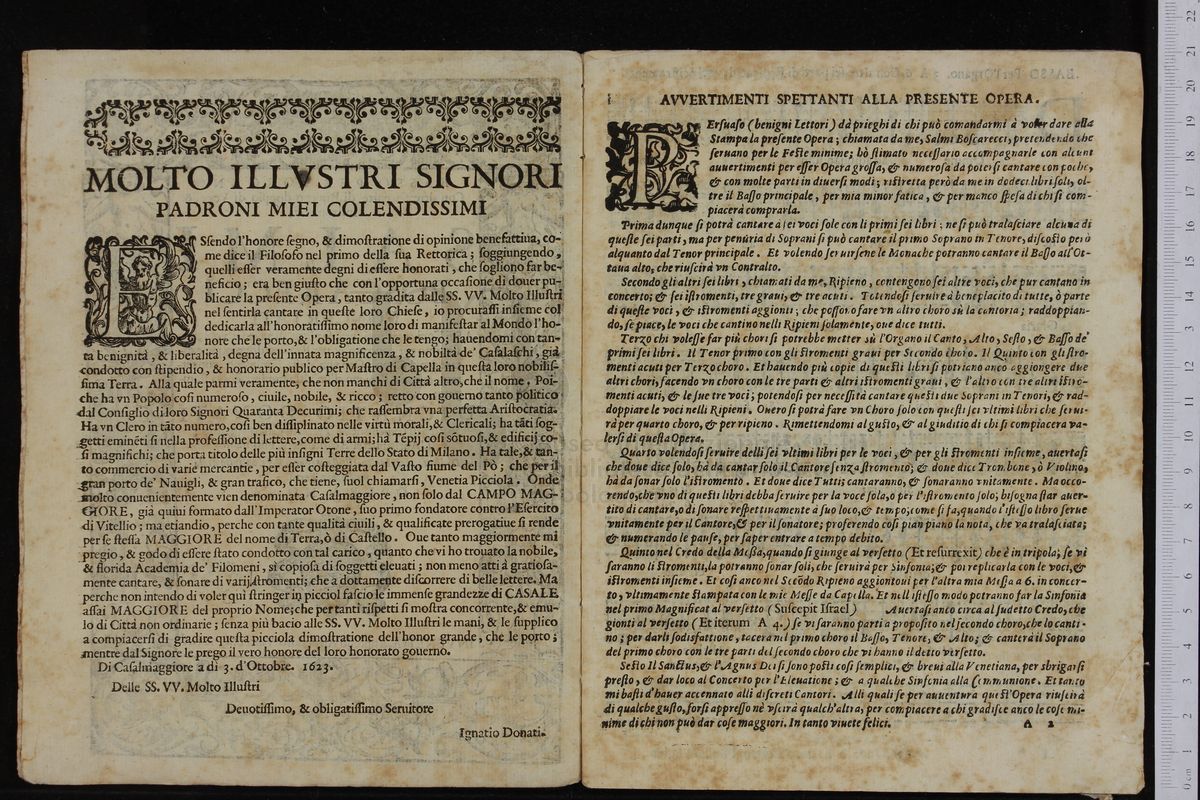 MOLTO ILLVSTRI SIGNORI
PADRONI MIEI COLENDISSIMI
ESsendo l'honore segno, & dimostratione di opinione benefattiua, co-
me dice il Filosofo nel primo della sua Rettorica; soggiungendo,
quelli esser veramente degni di essere honorati, che sogliono far be-
neficio; era ben giusto che con l'opportuna occasione di douer pu-
blicare la presente Opera, tanto gradita dalle SS. VV. Molto Illustri
nel sentirla cantare in queste loro Chiese, io procurassi insieme col
dedicarla all'honoratissimo nome loro di manifestar al Mondo l'ho-
nore che le porto, & l'obligatione che le tengo; hauendomi con tan-
ta benignità, & liberalità, degna dell'innata magnificenza, & nobiltà de' Casalaschi, già
condotto con stipendio, & honorario publico per Mastro di Capella in questa loro nobilis-
sima Terra. Alla quale parmi veramente, che non manchi di Città altro, che il nome. Poi-
che ha vn Popolo cosi numeroso, ciuile, nobile, & ricco; retto con gouerno tanto politico
dal Consiglio di loro Signori Quaranta Decurimi; che rassembra vna perfetta Aristocratia.
Ha vn Clero in tãto numero, cosi ben dissiplinato nelle virtù morali, & Clericali; hà tãti sog-
getti eminẽti si nella professione di lettere, come di armi; hà Tẽpij cosi sõtuosi, & edificij co-
si magnifichi; che porta titolo delle più insigni Terre dello Stato di Milano. Ha tale, & tan-
to commercio di varie mercantie, per esser costeggiata dal Vasto fiume del Pò; che per il
gran porto de' Nauigli, & gran trafico, che tiene, suol chiamarsi, Venetia Picciola. Onde
molto conuenientemente vien denominata Casalmaggiore, non solo dal CAMPO MAG-
GIORE, già quiui formato dall'Imperator Otone, suo primo fondatore contro l'Esercito
di Vitellio; ma etiandio, perche con tante qualità ciuili, & qualificate prerogatiue si rende
per se stessa MAGGIORE del nome di Terra, ò di Castello. Oue tanto maggiormente mi
pregio, & godo di essere stato condotto con tal carico, quanto che vi ho trouato la nobile,
& florida Academia de' Filomeni, sì copiosa di soggetti eleuati; non meno atti à gratiosa-
mente cantare, & sonare di varij stromenti; che a dottamente discorrere di belle lettere. Ma
perche non intendo di voler quì stringer in picciol fascio le immense grandezze di CASALE
assai MAGGIORE del proprio Nome; che per tanti rispetti si mostra concorrente, & emu-
lo di Città non ordinarie; senza più bacio alle SS. VV. Molto Illustri le mani, & le supplico
a compiacersi di gradire questa picciola dimostratione dell'honor grande, che le porto;
mentre dal Signore le prego il vero honore del loro honorato gouerno.
Di Casalmaggiore a di 3. d'Ottobre. 1623.
Delle SS. VV. Molto Illustri
Deuotissimo, & obligatissimo Seruitore
Ignatio Donati.
AVVERTIMENTI SPETTANTI ALLA PRESENTE OPERA.
PErsuaso (benigni Lettori) dà prieghi di chi può comandarmi à voler dare alla
Stampa la presente Opera; chiamata da me, Salmi Boscarecci, pretendendo che
seruano per le Feste minime; hò stimato necessario accompagnarle con alcuni
auuertimenti per esser Opera grossa, & numerosa da potersi cantare con poche,
& con molte parti in diuersi modi; ristretta però da me in dodeci libri soli, ol-
tre il Basso principale, per mia minor fatica, & per manco spesa di chi si com-
piacerà comprarla.
Prima dunque si potrà cantare à sei voci sole con li primi sei libri: ne si può tralasciare alcuna di
queste sei parti, ma per penuria di Soprani si può cantare il primo Soprano in Tenore, discosto però
alquanto dal Tenor principale. Et volendo seruirsene le Monache potranno cantare il Basso all'Ot-
taua alto, che riuscirà vn Contralto.
Secondo gli altri sei libri, chiamati da me, Ripieno, contengono sei altre voci, che pur cantano in
concerto; & sei istromenti, tre graui, & tre acuti. Potendosi seruire à beneplacito di tutte, ò parte
di queste voci, & istromenti aggionti; che possono fare vn altro choro sù la cantoria; raddoppian-
do, se piace, le voci che cantino nelli Ripieni solamente, oue dice tutti.
Terzo chi volesse far più chori si potrebbe metter sù l'Organo il Canto, Alto, Sesto, & Basso de'
primi sei libri. Il Tenor primo con gli stromenti graui per Secondo choro. Il Quinto con gli stro-
menti acuti per Terzo choro. Et hauendo più copie di questi libri si potriano anco aggiongere due
altri chori, facendo vn choro con le tre parti & altri istromenti graui, & l'altro con tre altri istro-
menti acuti, & le sue tre voci; potendosi per necessità cantare questi due Soprani in Tenori, & rad-
doppiare le voci nelli Ripieni. Ouero si potrà fare vn Choro solo con questi sei vltimi libri che serui-
rà per quarto choro, & per ripieno. Rimettendomi al gusto, & al giuditio di chi si compiacera va-
lersi di questa Opera.
Quarto volendosi seruire delli sei vltimi libri per le voci, & per gli stromenti insieme, auertasi
che doue dice solo, hà da cantar solo il Cantore senza stromento; & doue dice Trombone, ò Violino,
hà da sonar solo l'istromento. Et doue dice Tutti; cantaranno, & sonaranno vnitamente. Ma occo-
rendo, che vno di questi libri debba seruire per la voce sola, o per l'istromento solo; bisogna star auer-
tito di cantare, o di sonare respettiuamente à suo loco, & tempo, come si fa, quando l'istesso libro serue
vnitamente per il Cantore, & per il sonatore; proferendo cosi pian piano la nota, che va tralasciata;
& numerando le pause, per saper entrare a tempo debito.
Quinto nel Credo della Messa, quando si giunge al versetto (Et resurrexit) che è in tripola; se vi
saranno li stromenti, la potranno sonar soli, che seruirà per Sinfonia; & poi replicarla con le voci, &
istromenti insieme. Et cosi anco nel Secõdo Ripieno aggiontoui per l'altra mia Messa a 6. in concer-
to, vltimamente stampata con le mie Messe da Capella. Et nell istesso modo potranno far la Sinfonia
nel primo Magnificat al versetto (Suscepit Israel) Auertasi anco circa al sudetto Credo, che
gionti al versetto (Et iterum A 4.) se vi saranno parti a proposito nel secondo choro, che lo canti-
no; per darli sodisfattione, tacerà nel primo choro il Basso, Tenore, & Alto; & canterà il Soprano
del primo choro con le tre parti del secondo choro che vi hanno il detto versetto.
Sesto Il Sanctus, & l'Agnus Dei si sono posti cosi semplici, & breui alla Venetiana, per sbrigarsi
presto, & dar loco al Concerto per l'Eleuatione; & a qualche Sinfonia alla Communione. Et tanto
mi basti d'hauer accennato alli discreti Cantori. Alli quali se per auuentura quest'Opera riuscirà
di qualche gusto, forsi appresso nè vscirà qualch'altra, per compiacere a chi gradisce anco le cose mi-
nime di chi non può dar cose maggiori. In tanto viuete felici.
A 2